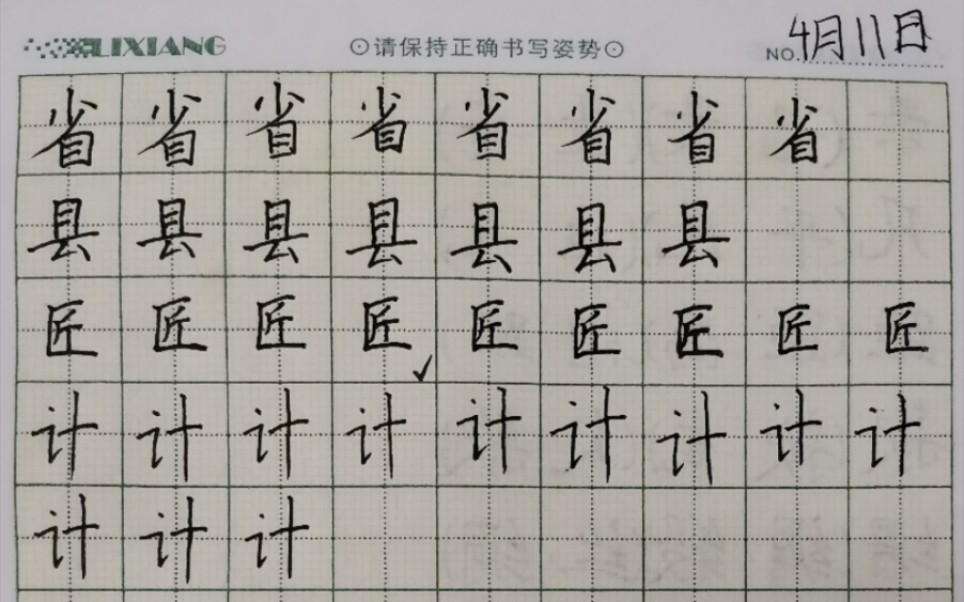 LIXIANG ⊙请保持正确书写姿势⊙ NO. 4月11日
省省省省省省省省
县县县县县县县
匠匠匠匠匠匠匠匠匠
计计计计计计计计计
计计计